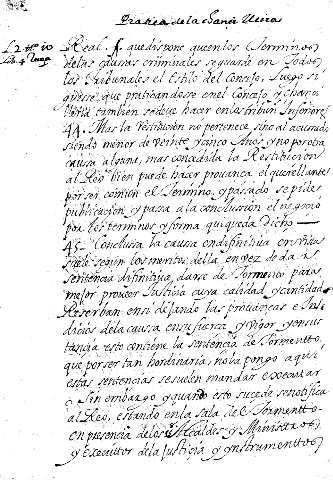 Pratica de la Santa
L. 2 tt.º 10
Lib. 4
Real. q. que dispone que en los Terminos
de las causas criminales se guarde en Todos
los Tribunales el Estilo del Consejo, luego si
guesse que praticandosse en el Consejo y Chanci
lleria tambien se deve hacer en los tribun. Inferiores
44. Mas la restitucion no pertenece sino al acusado
siendo menor de veinte y cinco Años y no por otra
causa alguna, mas concedida la Restitucion
al Reo bien puede hacer provanca el querellante
por ser comun el Termino, y pasado se pide
publicacion y pasa a la conclussion el negocio
por los terminos y forma que queda dicho
45. Conclusa la causa en difinitiva en vista
suele segun los meritos della en vez de dar
sentencia difinitiva, darse de Tormento para
mejor proveer Justicia cuya calidad y cantidad
Reserban en si dejando las provancas e In
dicios de la causa en su fuerca y vigor, y en sus
tancia esto contiene la sentencia de Tormentto,
que por ser tan hordinaria, no la pongo aqui
estas sentencias se suelen mandar executar
Sin embargo y quando esto sucede se notifica
al Reo, estando en la sala de Tormentto
en presencia de los Alcaldes y Ministros
y executor de la Justicia y ynstrumenttos